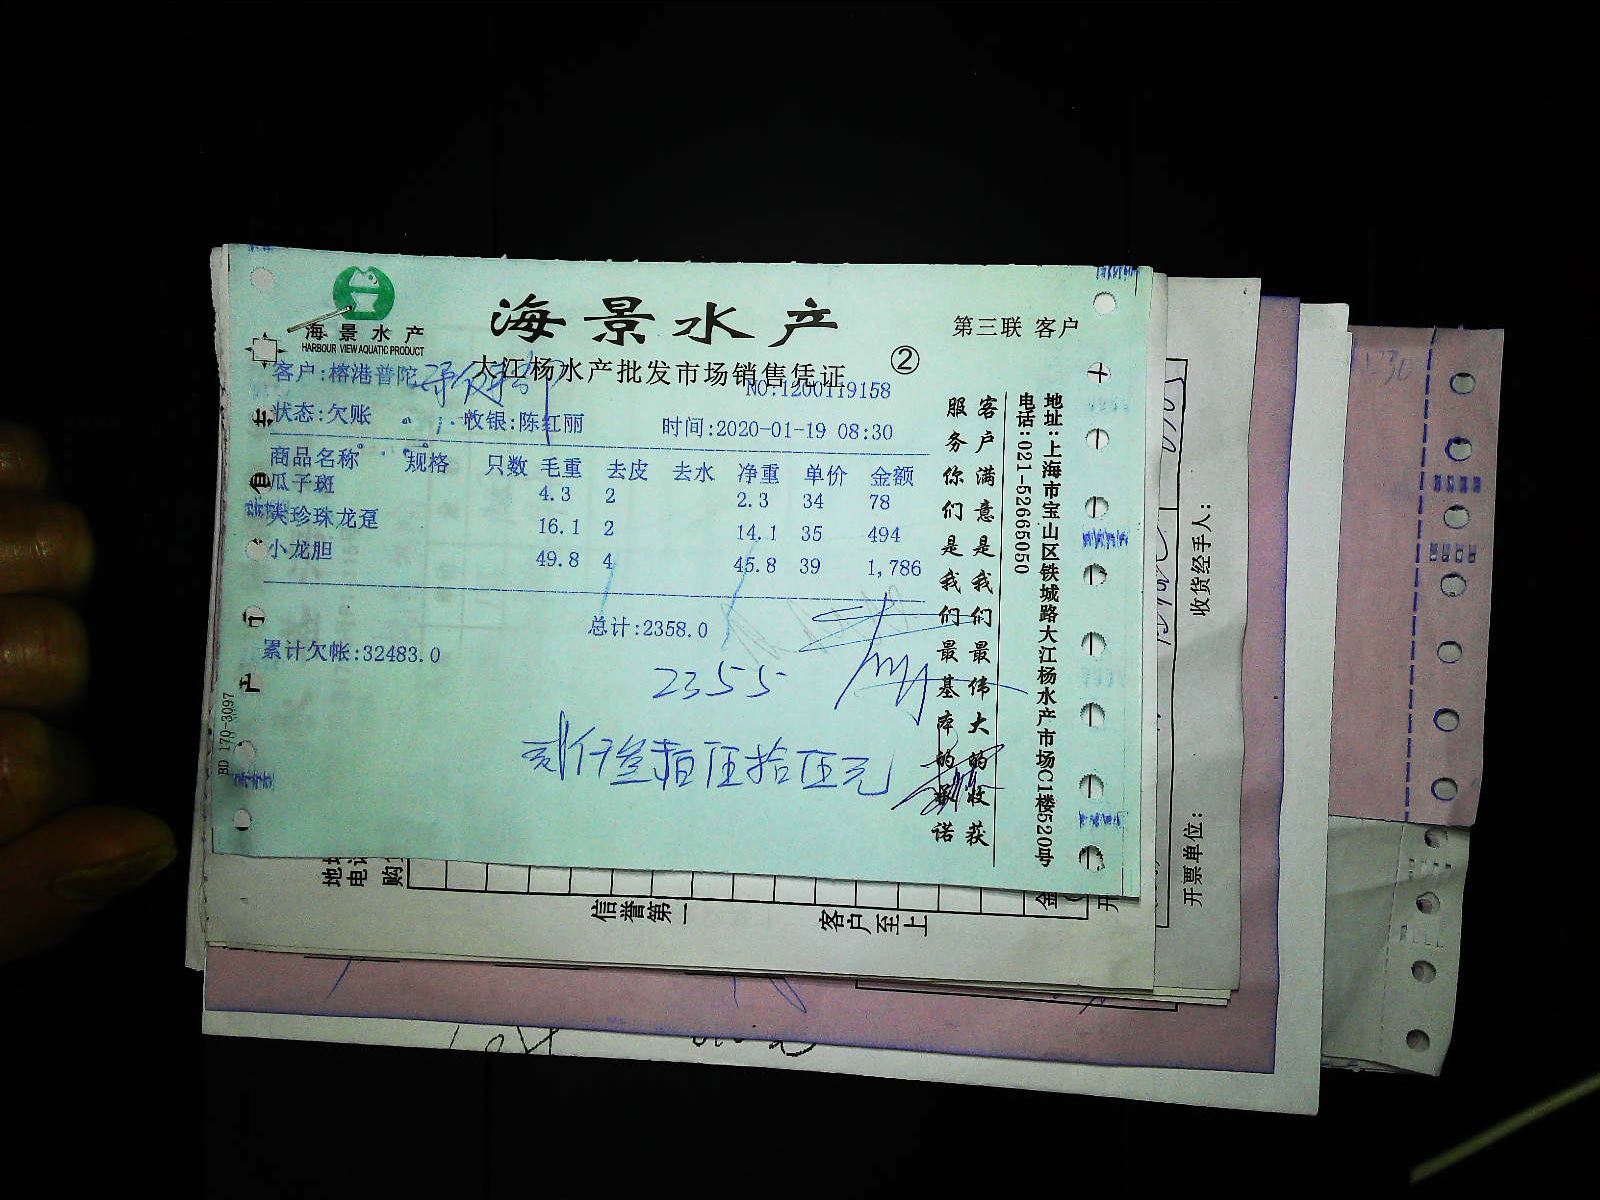 海景水产
HARBOUR VIEW AQUATIC PRODUCT
海景水产
第三联 客户
大江杨水产批发市场销售凭证
②
客户:榕港普陀
NO:1200119158
状态:欠账
收银:陈红丽
时间:2020-01-19 08:30
商品名称 规格 只数 毛重 去皮 去水 净重 单价 金额
瓜子斑 4.3 2 2.3 34 78
珍珠龙趸 16.1 2 14.1 35 494
小龙胆 49.8 4 45.8 39 1,786
总计:2358.0
累计欠帐:32483.0
2355
贰仟叁佰伍拾伍元
客户满意是我们最伟大的收获
服务你们是我们最基本的承诺
地址:上海市宝山区铁城路大江杨水产市场C1楼520号
电话:021-52665050
BD 170-3097
收货经手人:
开票单位:
信誉第一
客户至上